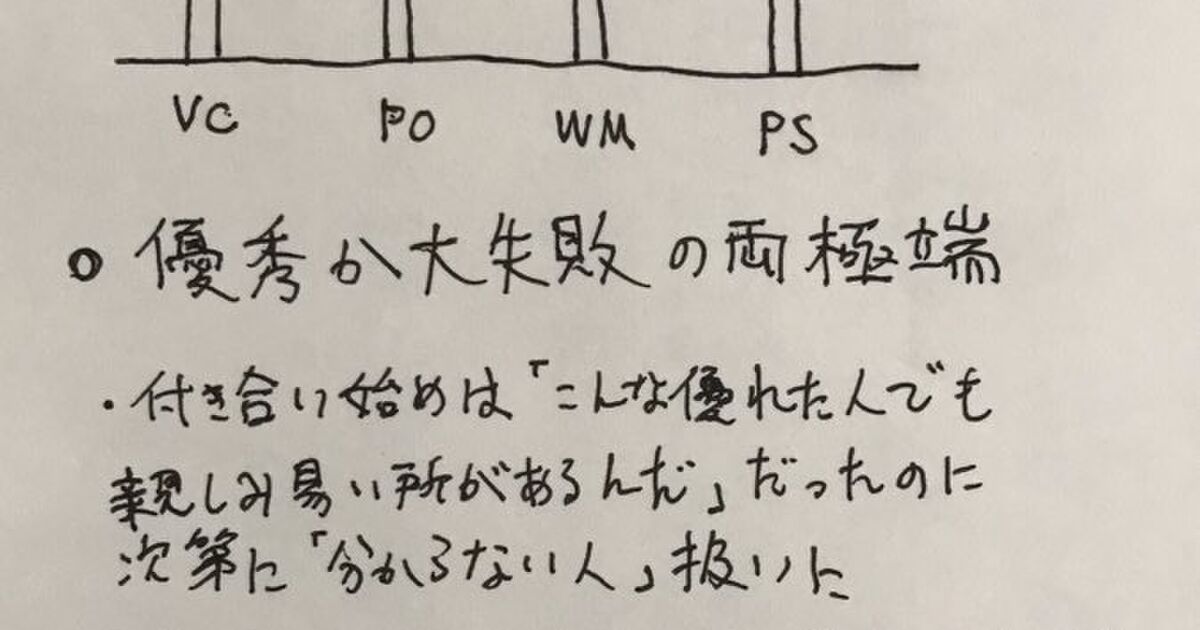 VC PO WM PS
○ 優秀か大失敗の両極端
・付き合い始めは「こんな優れた人でも
親しみ易い所があるんだ」だったのに
次第に「分からない人」扱いに